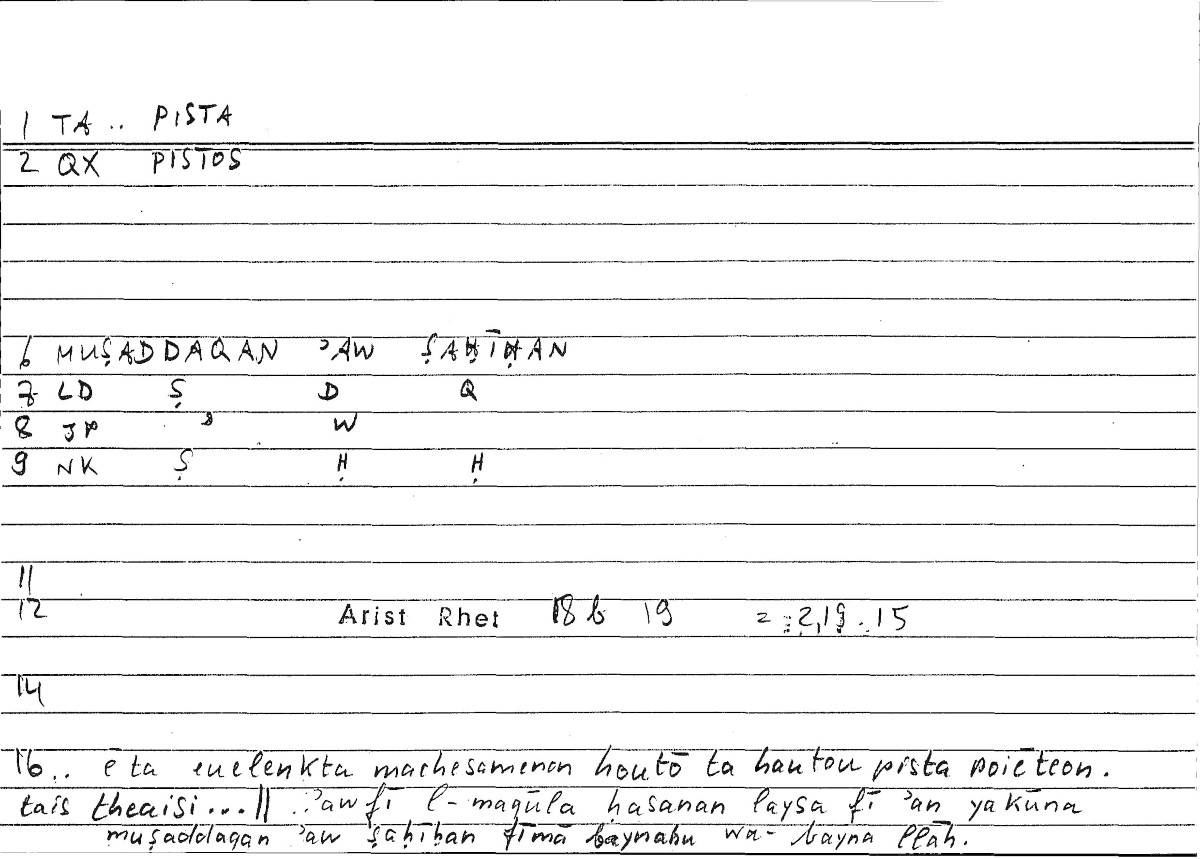 1 TA .. PISTA
2 QX PISTOS
6 MUṢADDAQAN ʾAW ṢAḤĪḤAN
7 LD Ṣ D Q
8 JP ʾ W
9 NK Ṣ Ḥ Ḥ
11
12 Arist Rhet 18 b 19 = 2,19.15
14
16.. ē ta euelenkta machesamenon houtō ta hautou pista poiēteon.
tais theaisi...|| ʾaw fī l-maqūla ḥasanan laysa fī ʾan yakūna
muṣaddaqan ʾaw ṣaḥīḥan fīmā baynahu wa-bayna llāh.